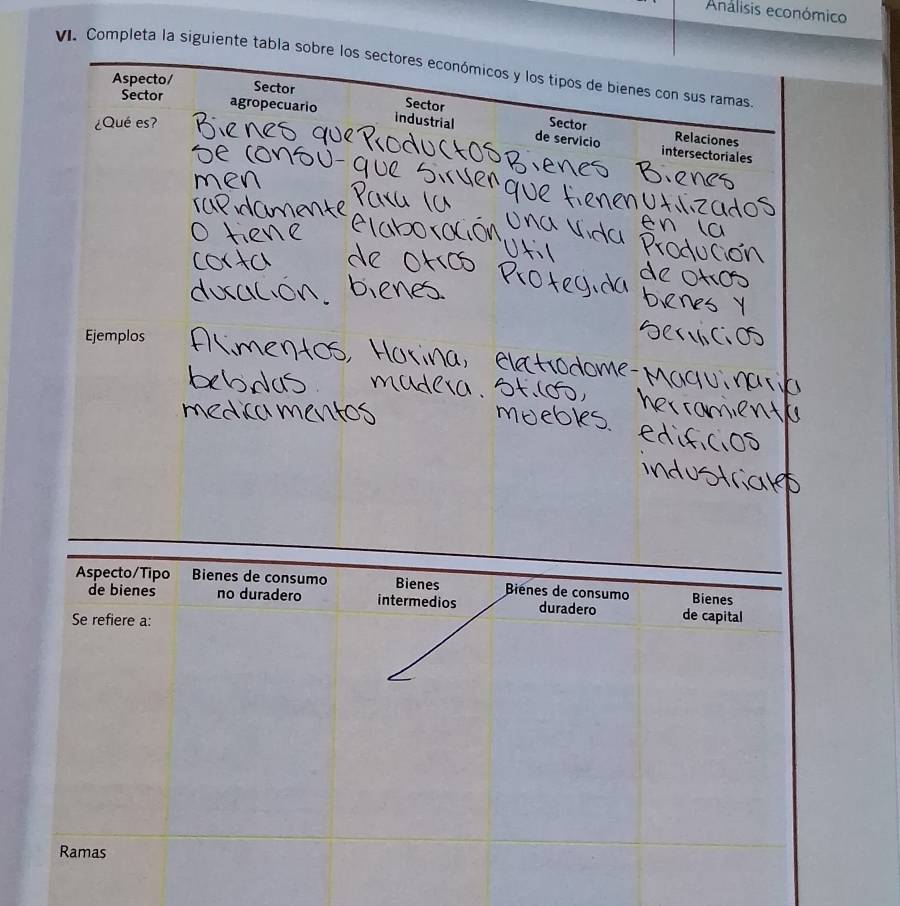 Análisis económico
VI. Completa la siguiente tabla sobre los sectores económicos y los tipos de bienes con sus ramas.
Aspecto/
Sector
Sector
agropecuario
Sector
industrial
Sector
de servicio
Relaciones
intersectoriales
¿Qué es?
Bienes que
se consu-
men
rapidamente
o tiene
corta
duración.
Productos
que sirven
Para la
elaboración
de otros
bienes.
Bienes
que tienen
una vida
util
Protegida
Bienes
utilizados
en la
Produción
de otros
bienes y
servicios
Ejemplos
Alimentos,
bebidas
medicamentos
Harina,
madera.
electrodome-
sticos,
moebles.
Maquinaria
herramienta
edificios
industriales
Aspecto/Tipo
de bienes
Bienes de consumo
no duradero
Bienes
intermedios
Bienes de consumo
duradero
Bienes
de capital
Se refiere a:
Ramas